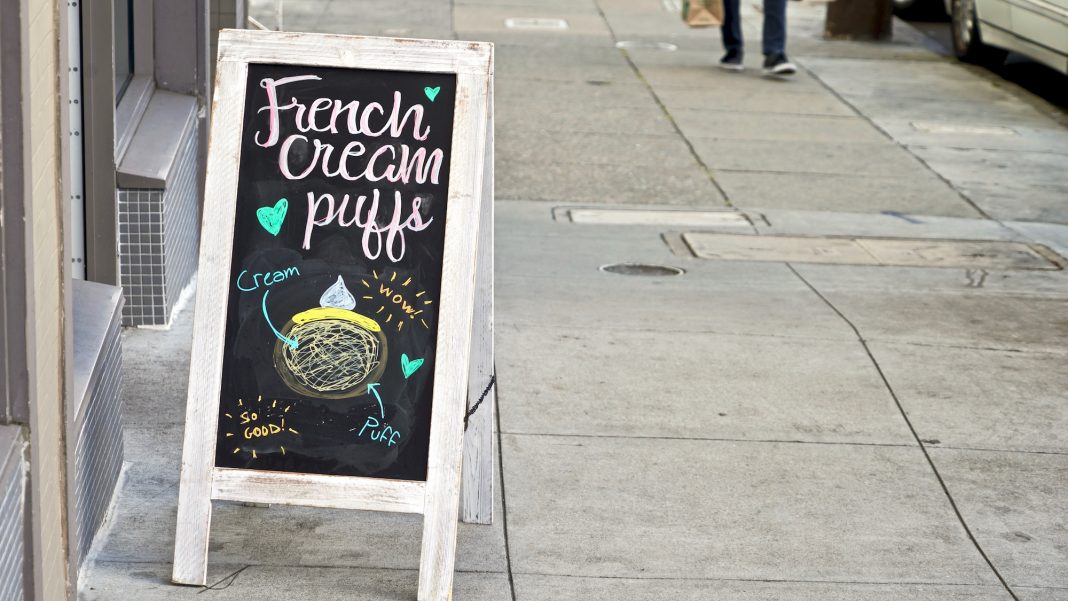 French
Cream
puffs
Cream
WOW!
SO
GOOD!
Puff